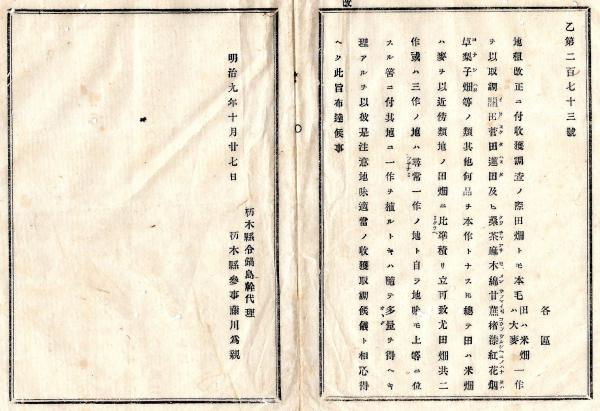 乙第二百七十三號
各區
地租改正ニ付收獲調査ノ際田畑トモ本毛田ハ米畑ハ大麥一作
ヲ以取調藺田菅田蓮田及ヒ桑茶麻木綿甘蔗楮漆紅花烟
草梨子畑等ノ類其他何品ヲ本作トナスモ總テ田ハ米畑
ハ麥ヲ以近傍類地ノ田畑ニ比準積リ立可致尤田畑共二
作或ハ三作ノ地ハ尋常一作ノ地ト自ラ地味モ上等ニ位
スル筈ニ付其地ニ一作ヲ植ルトキハ隨テ多量ヲ得ヘキ
理アルヲ以彼是注意地味適當ノ收獲取調候儀ト相心得
ヘク此旨布達候事
明治九年十月廿七日
栃木縣令鍋島幹代理
栃木縣參事藤川爲親